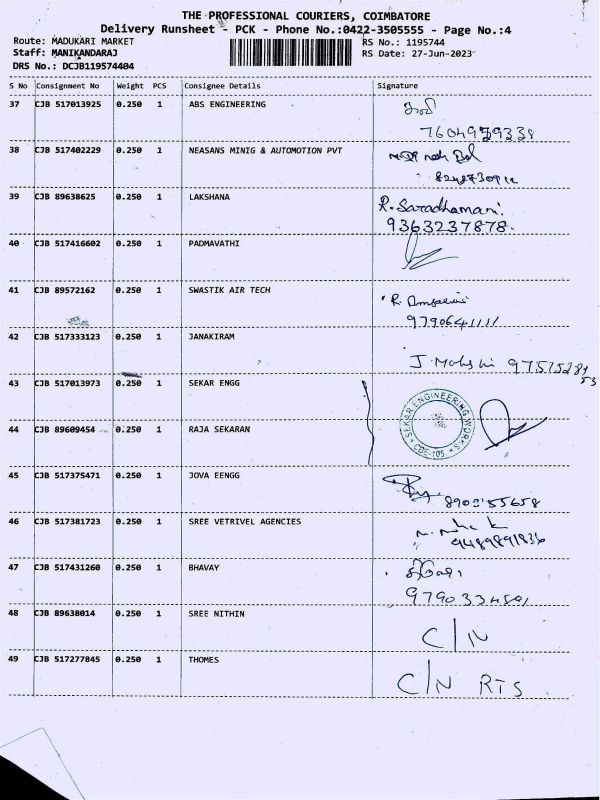 THE PROFESSIONAL COURIERS, COIMBATORE
Delivery Runsheet - PCK - Phone No.:0422-3505555 - Page No.:4
Route: MADUKARI MARKET
RS No.: 1195744
Staff: MANIKANDARAJ
RS Date: 27-Jun-2023
DRS No.: DCJB119574404
S No Consignment No Weight PCS Consignee Details Signature
37 CJB 517013925 0.250 1 ABS ENGINEERING
7604979338
38 CJB 517402229 0.250 1 NEASANS MINIG & AUTOMOTION PVT
39 CJB 89638625 0.250 1 LAKSHANA R. Saradhamani
9363237878.
40 CJB 517416602 0.250 1 PADMAVATHI
41 CJB 89572162 0.250 1 SWASTIK AIR TECH R.
9790641111
42 CJB 517333123 0.250 1 JANAKIRAM
J. 97515281
53
43 CJB 517013973 0.250 1 SEKAR ENGG
SEKAR ENGINEERING WORKS
CBE-105
44 CJB 89609454 0.250 1 RAJA SEKARAN
45 CJB 517375471 0.250 1 JOVA EENGG
46 CJB 517381723 0.250 1 SREE VETRIVEL AGENCIES
9489891836
47 CJB 517431260 0.250 1 BHAVAY
9790334501
48 CJB 89638014 0.250 1 SREE NITHIN
C/N
49 CJB 517277845 0.250 1 THOMES
C/N RTS